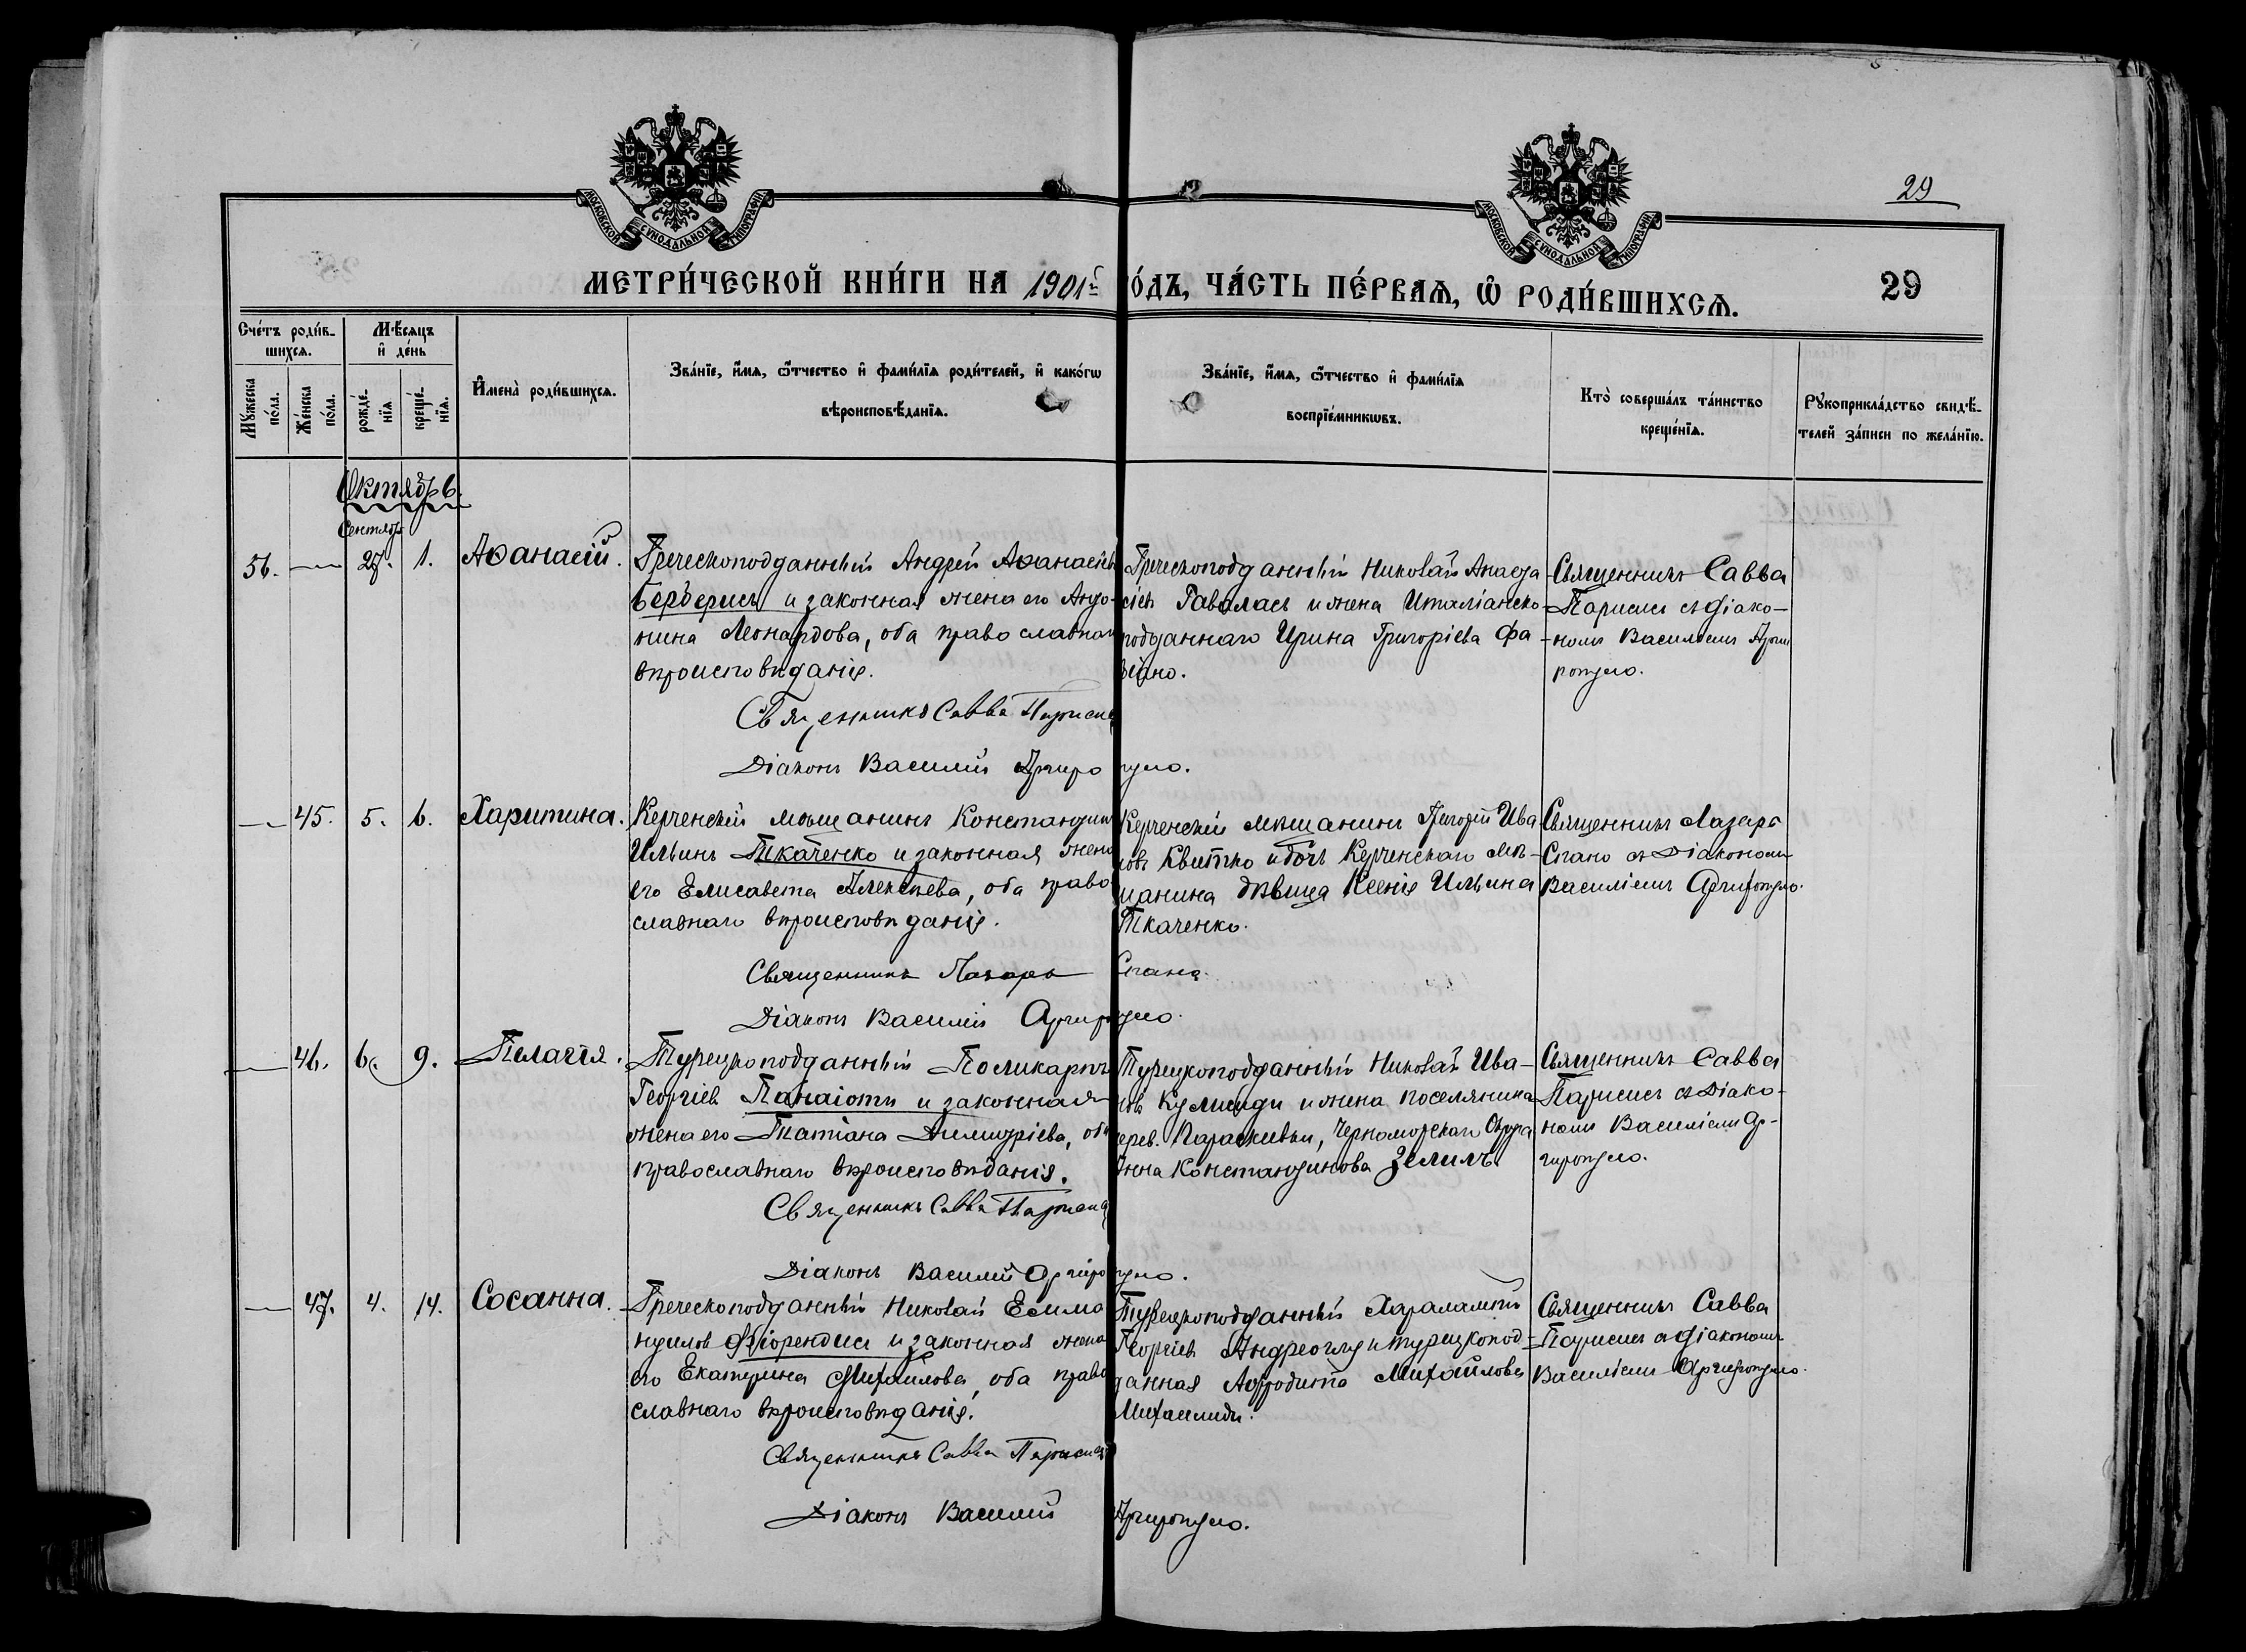 29
МОСКОВСКОЙ СѴНОДАЛЬНОЙ ТИПОГРАФІИ
МОСКОВСКОЙ СѴНОДАЛЬНОЙ ТИПОГРАФІИ
МЕТРИ́ЧЕСКОЙ КНИ́ГИ НА 1901й
О́ДЪ, ЧА́СТЬ ПЕ́РВАѦ, Ѡ҆ РОДИ́ВШИХСѦ.
29
Сче́тъ роди́в-
шихсѧ.
Мꙋ́жеска по́ла.
Же́нска по́ла.
Мѣ́сѧцъ
и҆ де́нь
рожде́-
нїѧ
креще́-
нїѧ.
И҆мена̀ роди́вшихсѧ.
Зва́нїе, и҆́мѧ, ѻ҆́тчество и҆ фами́лїѧ роди́телей, и҆ како́гѡ
вѣроисповѣ́данїѧ.
Зва́нїе, и҆́мѧ, ѻ҆́тчество и҆ фами́лїѧ
воспрїе́мникѡвъ.
Кто̀ соверша́лъ та́инство
креще́нїѧ.
Рꙋкоприкла́дство свидѣ́-
телей за́писи по жела́нїю.
Октябрь.
Сентябр
56. — 27. 1. Аѳанасій.
Греческоподданный Андрей Аѳанасіевъ
Берберисъ и законная жена его Анто-
нина Леонардова, оба православнаго
вѣроисповѣданія.
Священникъ Савва Парисис
Діаконъ Василій Аргиро
Греческоподданный Николай Анаста
сіевъ Гаваласъ и жена Италіанско-
подданнаго Ирина Григоріева Фа-
біано.
пуло.
Священникъ Савва
Парисисъ съ діако-
номъ Василіемъ Арги
ропуло.
— 45. 5. 6. Харитина.
Керченскій мѣщанинъ Константинъ
Ильинъ Ткаченко и законная жена
его Елисавета Алексѣева, оба право
славнаго вѣроисповѣданія.
Священникъ Лазарь
Діаконъ Василій Аргиро
Керченскій мѣщанинъ Григорій Ива
новъ Квитко и дочь Керченскаго мѣ-
щанина дѣвица Ксенія Ильина
Ткаченко.
Спано.
пуло.
Священникъ Лазарь
Спано съ Діакономъ
Василіемъ Аргиропуло.
— 46. 6. 9. Пелагія.
Турецкоподданный Поликарпъ
Георгіевъ Панаіоти и законная
жена его Татіана Димитріева, оба
православнаго вѣроисповѣданія.
Священникъ Савва Парисис
Діаконъ Василій Аргиро
Турецкоподданный Николай Ива-
новъ и жена поселянина
дерев. Параскивьи, Черноморскаго Округа
Анна Константинова
пуло.
Священникъ Савва
Парисисъ съ Діако-
номъ Василіемъ Ар-
гиропуло.
— 47. 4. 14. Сосанна.
Греческоподданный Николай Емма
нуилов Фіорендиси и законная жена
его Екатерина Михаилова, оба право
славнаго вѣроисповѣданія.
Священникъ Савва Парисис
Діаконъ Василій
Турецкоподданный Харалампій
Георгіевъ Андреоглу и турецкопод-
данная Афродита Михайлова
Михаилиди.
Аргиропуло.
Священникъ Савва
Парисисъ съ діакономъ
Василіемъ Аргиропуло.